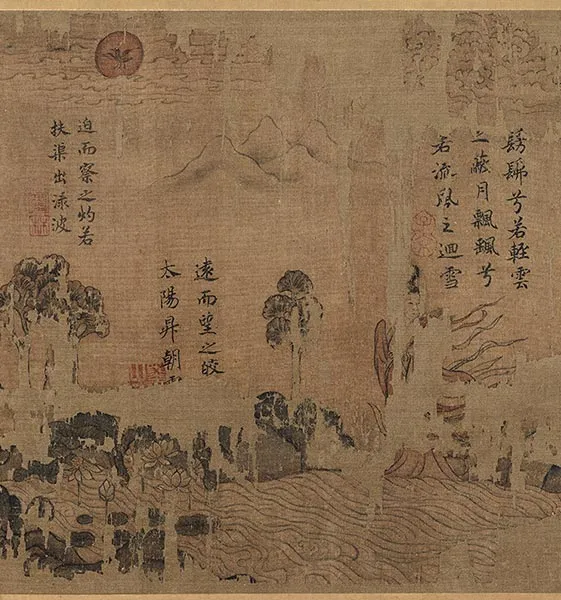 髣髴兮若輕雲
之蔽月飄颻兮
若流風之迴雪
遠而望之皎
太陽昇朝
迫而察之灼若
扶渠出淥波